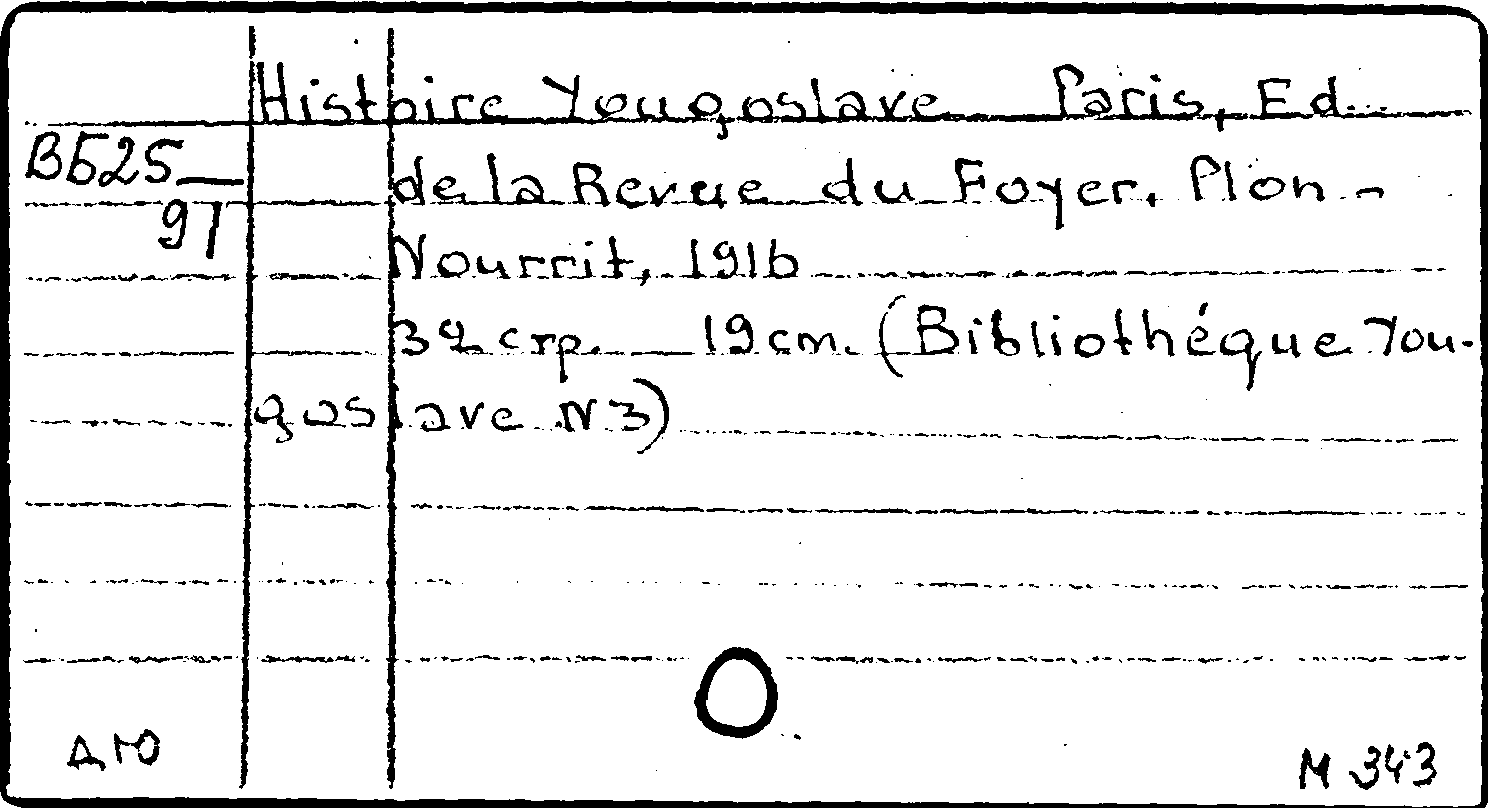 Histoire Yougoslave Paris, Ed.
ВБ25
97
de la Revue du Foyer. Plon -
Nourrit, 1916
32 стр. 19 cm. (Bibliothéque You-
goslave N 3)
ДЮ
М 343